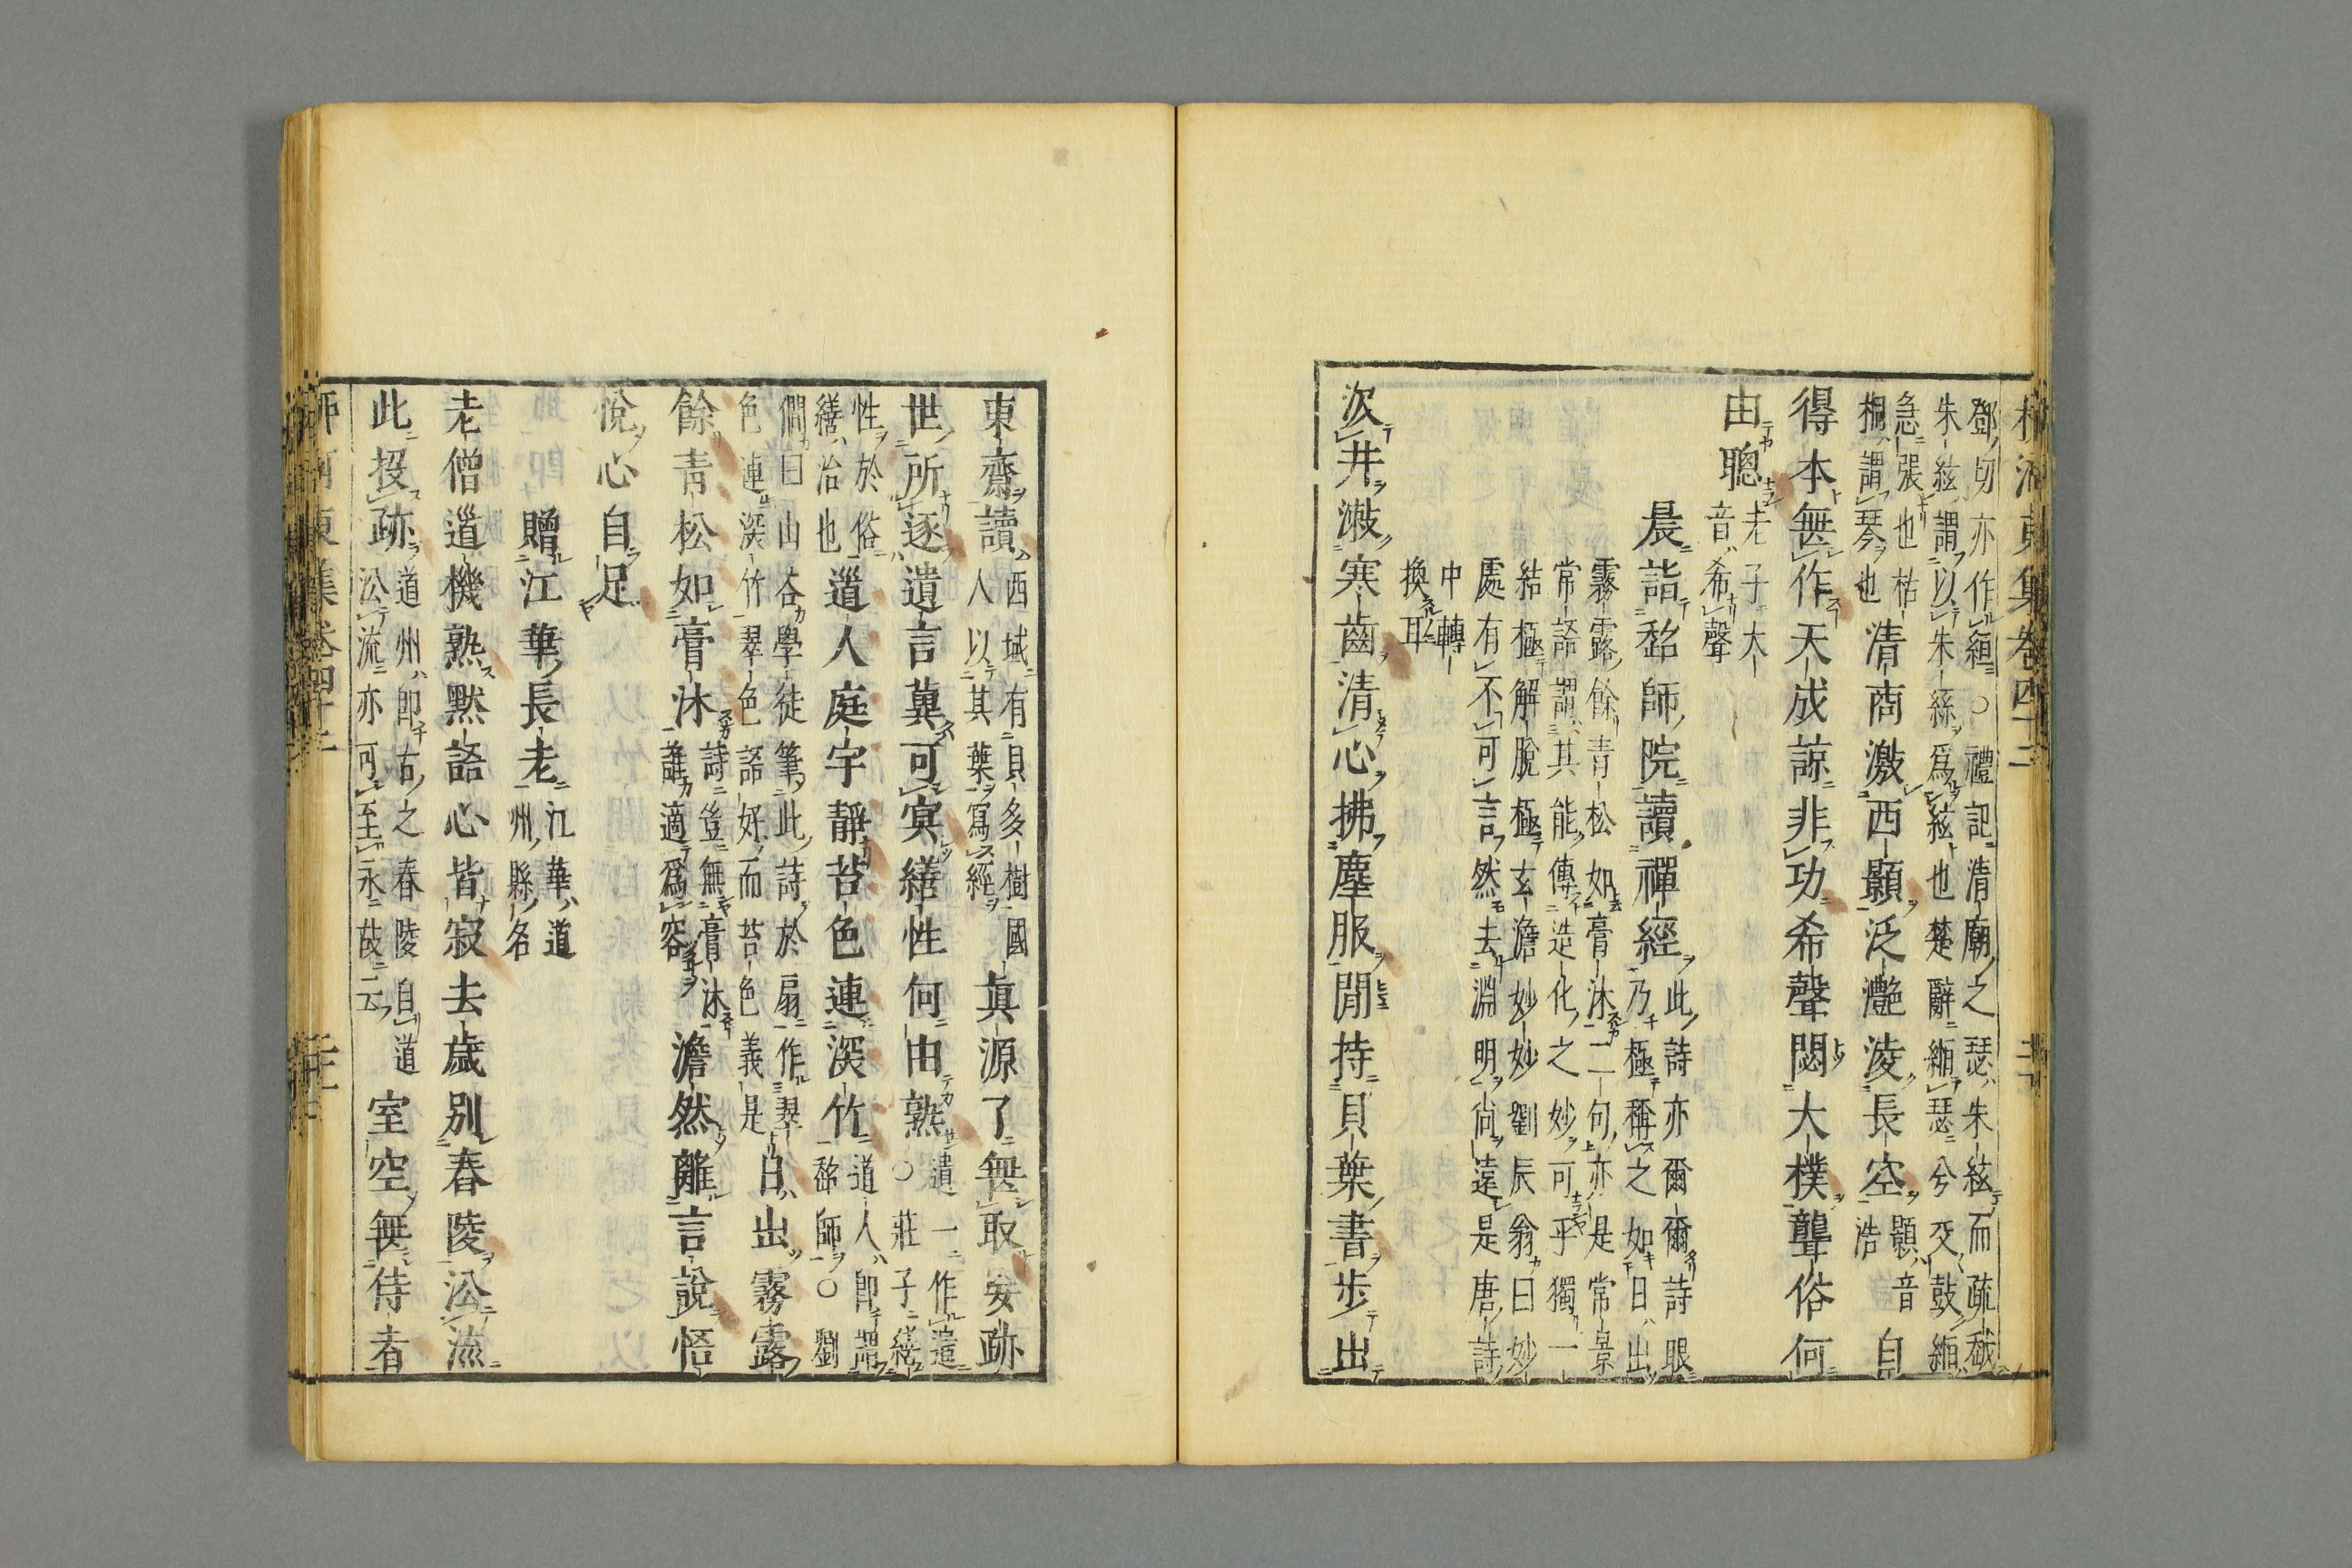 柳河東集卷四十二
鄧切亦作緪○禮記清廟之瑟朱絃而疏越
朱絃謂以朱絲爲絃也楚辭緪瑟兮交鼓緪
急張也枯
桐謂琴也
清商激西顥泛灧凌長空
顥音
浩
自
得本無作天成諒非功希聲閟大樸聾俗何
由聰
老子大
音希聲
晨詣超師院讀禪經
此詩亦爾爾詩眼
乃極稱之如日出
霧露餘青松如膏沐二句亦是常景
常語謂其能傳造化之妙可乎獨一
結極解脫極玄澹妙妙劉辰翁曰妙
處有不可言然去淵明尚遠是唐詩
中轉
換耳
汲井漱寒齒清心拂塵服閒持貝葉書步出
東齋讀
西域有貝多樹國
人以其葉寫經
真源了無取妄跡
世所逐遺言冀可冥繕性何由熟
遺一作遣
○莊子繕
性於俗
繕治也
道人庭宇靜苔色連深竹
道人即謂
超師○劉
僩曰山谷學徒筆此詩於扇作翠
色連深竹翠色語好而苔色義是
日出霧露
餘青松如膏沐
詩豈無膏沐
誰適爲容
澹然離言說悟
悅心自足
贈江華長老
江華道
州縣名
老僧道機熟默語心皆寂去歲別舂陵沿流
此投跡
道州即古之舂陵自道
沿流亦可至永故云
室空無侍者
柳河東集卷四十二